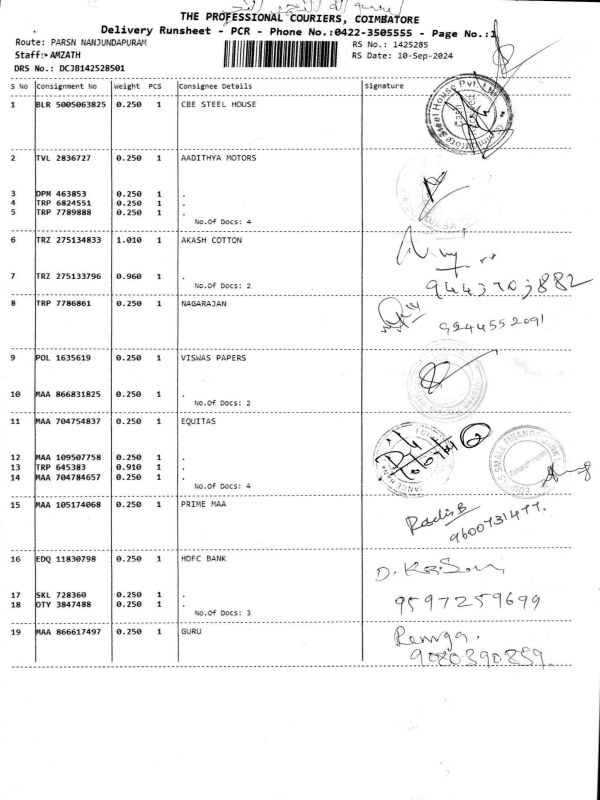 THE PROFESSIONAL COURIERS, COIMBATORE
Delivery Runsheet - PCR - Phone No.:0422-3505555 - Page No.:1
Route: PARSN NANJUNDAPURAM RS No.: 1425285
Staff: AMZATH RS Date: 10-Sep-2024
DRS No.: DCJB142528501
S No Consignment No Weight PCS Consignee Details Signature
1 BLR 5005063825 0.250 1 CBE STEEL HOUSE
2 TVL 2836727 0.250 1 AADITHYA MOTORS
3 DPM 463853 0.250 1 .
4 TRP 6824551 0.250 1 .
5 TRP 7789888 0.250 1 .
No.Of Docs: 4
6 TRZ 275134833 1.010 1 AKASH COTTON
7 TRZ 275133796 0.960 1 .
No.Of Docs: 2
8 TRP 7786861 0.250 1 NAGARAJAN
9244552091
9 POL 1635619 0.250 1 VISWAS PAPERS
10 MAA 866831825 0.250 1 .
No.Of Docs: 2
11 MAA 704754837 0.250 1 EQUITAS
12 MAA 109507758 0.250 1 .
13 TRP 645383 0.910 1 .
14 MAA 704784657 0.250 1 .
No.Of Docs: 4
15 MAA 105174068 0.250 1 PRIME MAA
9600731477.
16 EDQ 11830798 0.250 1 HDFC BANK
17 SKL 728360 0.250 1 .
18 OTY 3847488 0.250 1 .
9597259699
No.Of Docs: 3
19 MAA 866617497 0.250 1 GURU
9080390859.